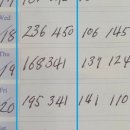 Wed
18 236 450 106 145
Thu
19 168 341 139 124
Fri
20 195 341 141 110